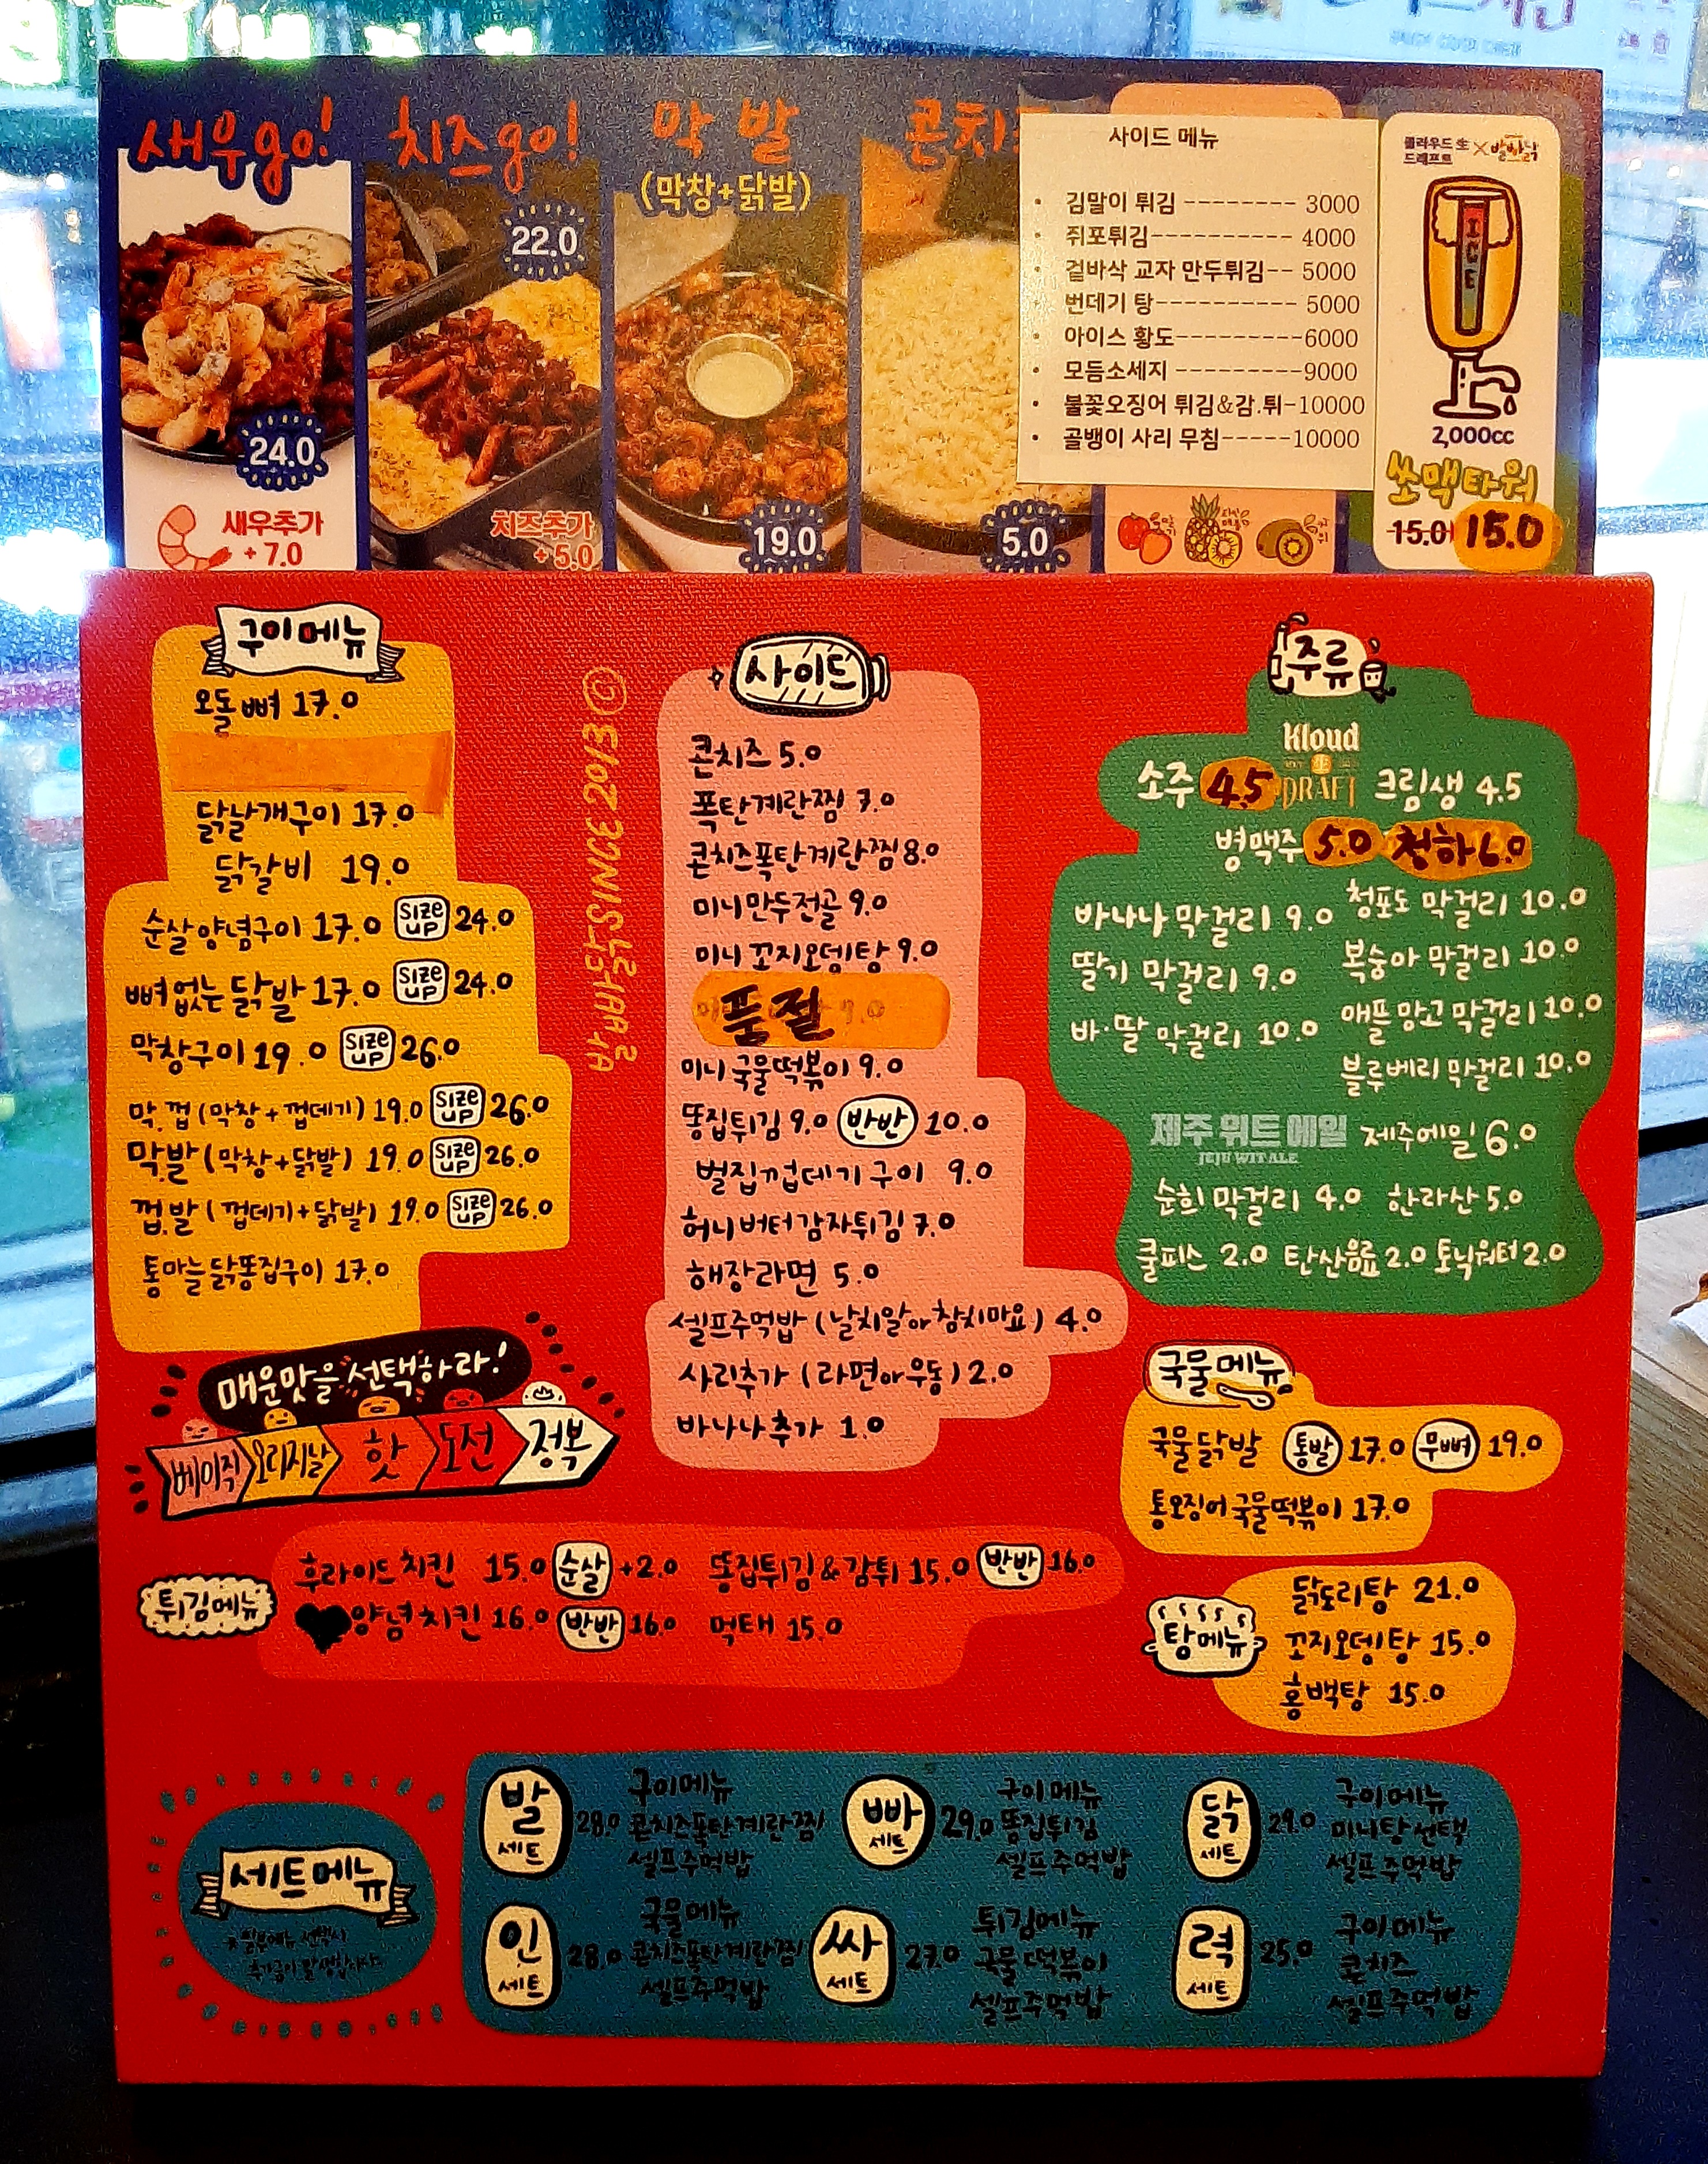 새우go!
24.0
새우추가
+7.0
치즈go!
22.0
치즈추가
+5.0
막발
(막창+닭발)
19.0
콘치
5.0
사이드 메뉴
• 김말이 튀김 -------- 3000
• 쥐포튀김---------- 4000
• 겉바삭 교자 만두튀김-- 5000
• 번데기 탕 ---------- 5000
• 아이스 황도---------6000
• 모듬소세지 ---------9000
• 불꽃오징어 튀김&감.튀-10000
• 골뱅이 사리 무침-----10000
클러우드 生
드래프트
X 발바닥
ICE
2,000cc
쏘맥타워
15.0 15.0
구이메뉴
오돌뼈 17.0
닭날개구이 17.0
닭갈비 19.0
순살양념구이 17.0 SIZE UP 24.0
뼈없는닭발 17.0 SIZE UP 24.0
막창구이 19.0 SIZE UP 26.0
막.껍 (막창+껍데기) 19.0 SIZE UP 26.0
막.발 (막창+닭발) 19.0 SIZE UP 26.0
껍.발 (껍데기+닭발) 19.0 SIZE UP 26.0
통마늘닭똥집구이 17.0
매운맛을 선택하라!
베이직 오리지날 핫 도전 정복
SINCE 2013
사이드
콘치즈 5.0
폭탄계란찜 7.0
콘치즈폭탄계란찜 8.0
미니만두전골 9.0
미니꼬지오뎅탕 9.0
품절
미니국물떡볶이 9.0
똥집튀김 9.0 반반 10.0
벌집껍데기구이 9.0
허니버터감자튀김 7.0
해장라면 5.0
셀프주먹밥 (날치알or참치마요) 4.0
사리추가 (라면or우동) 2.0
바나나추가 1.0
주류
Kloud
DRAFT
소주 4.5 크림생 4.5
병맥주 5.0 청하 6.0
바나나 막걸리 9.0 청포도 막걸리 10.0
딸기 막걸리 9.0 복숭아 막걸리 10.0
바·딸 막걸리 10.0 애플망고 막걸리 10.0
블루베리 막걸리 10.0
제주 위트 에일
JEJU WIT ALE
제주에일 6.0
순희 막걸리 4.0 한라산 5.0
쿨피스 2.0 탄산음료 2.0 토닉워터 2.0
국물메뉴
국물닭발 통발 17.0 무뼈 19.0
통오징어국물떡볶이 17.0
튀김메뉴
후라이드치킨 15.0 순살 +2.0 똥집튀김&감튀 15.0 반반 16.0
양념치킨 16.0 반반 16.0 먹태 15.0
탕메뉴
닭도리탕 21.0
꼬지오뎅탕 15.0
홍백탕 15.0
세트메뉴
발 세트 28.0
구이메뉴
콘치즈폭탄계란찜
셀프주먹밥
빠 세트 29.0
구이메뉴
똥집튀김
셀프주먹밥
닭 세트 29.0
구이메뉴
미니탕선택
셀프주먹밥
인 세트 28.0
국물메뉴
콘치즈폭탄계란찜
셀프주먹밥
싸 세트 27.0
튀김메뉴
국물떡볶이
셀프주먹밥
력 세트 25.0
구이메뉴
콘치즈
셀프주먹밥